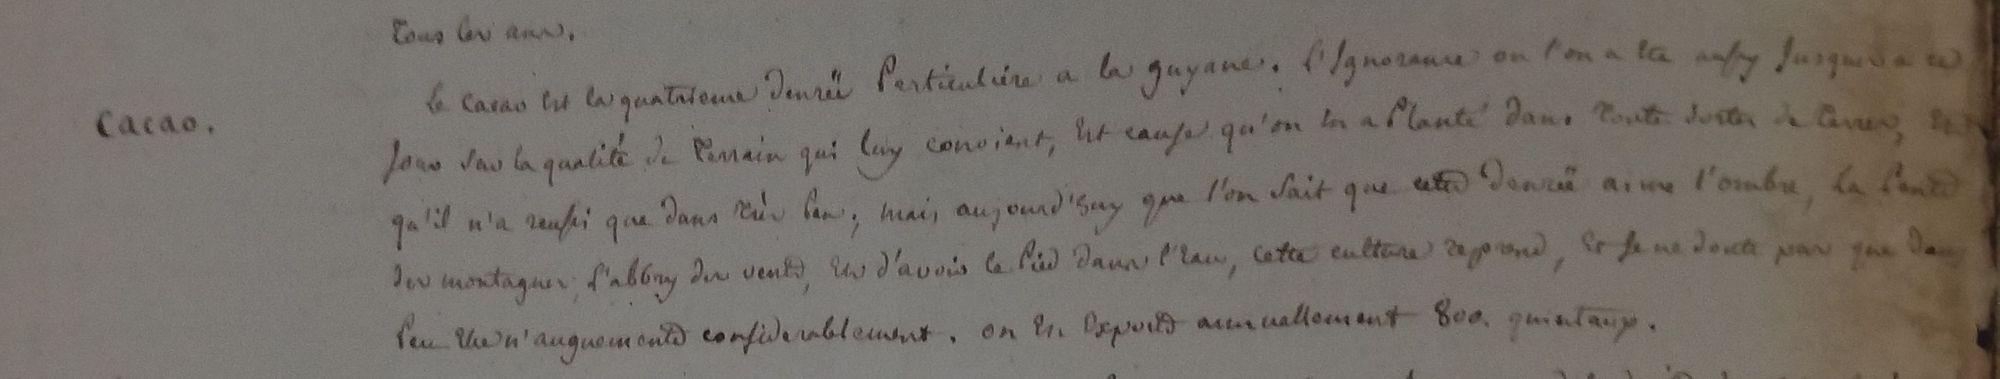 tous les ans.
Cacao.
le cacao est la quatrieme denrée Particuliere a la guyane. l'Ignorance ou l'on a été aussy Jusques a ce
Jour sur la qualité de terrain qui luy convient, est cause qu'on en a Planté dans toute sortes de terres, et
qu'il n'a reussi que dans très peu; mais aujourd'huy que l'on sait que cette denrée aime l'ombre, la pente
des montagnes, l'abbry des vents, et d'avoir le Pied dans l'eau, cette culture reprend, et Je ne doute pas que dans
peu elle n'augmente considerablement. on en Exporte annuellement 800. quintaux.